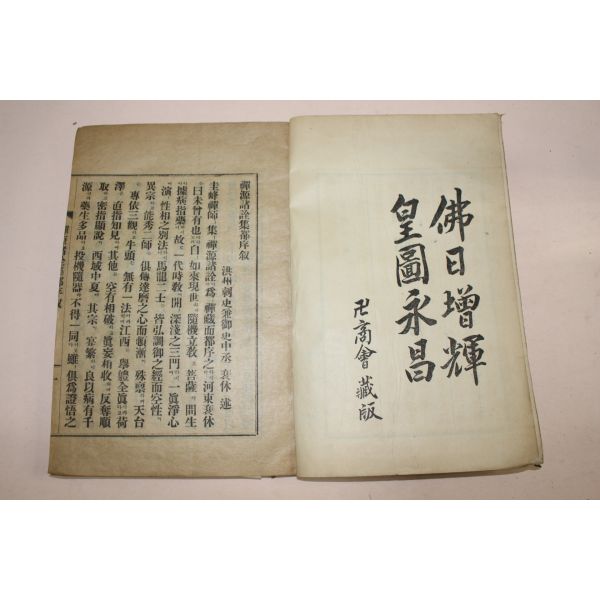 佛日增輝
皇圖永昌
卍商會藏版
禪源諸詮集都序叙
洪州刺史兼御史中丞裴休述
圭峰禪師集禪源諸詮爲禪藏而都序之河東裴休
曰未曾有也自如來現世隨機立教菩薩間生
據病指藥故一代時教開深淺之三門一眞淨心
演性相之別法馬龍二士皆弘調御之經而空性
異宗能秀二師俱傳達磨之心而頓漸殊禀天台
專依三觀牛頭無有一法江西擧體全眞荷
澤直指知見其他空有相破眞妄相收反奪順
取密指顯說西域中夏其宗寔繁良以病有千
源藥生多品投機隨器不得一同雖俱爲證悟之